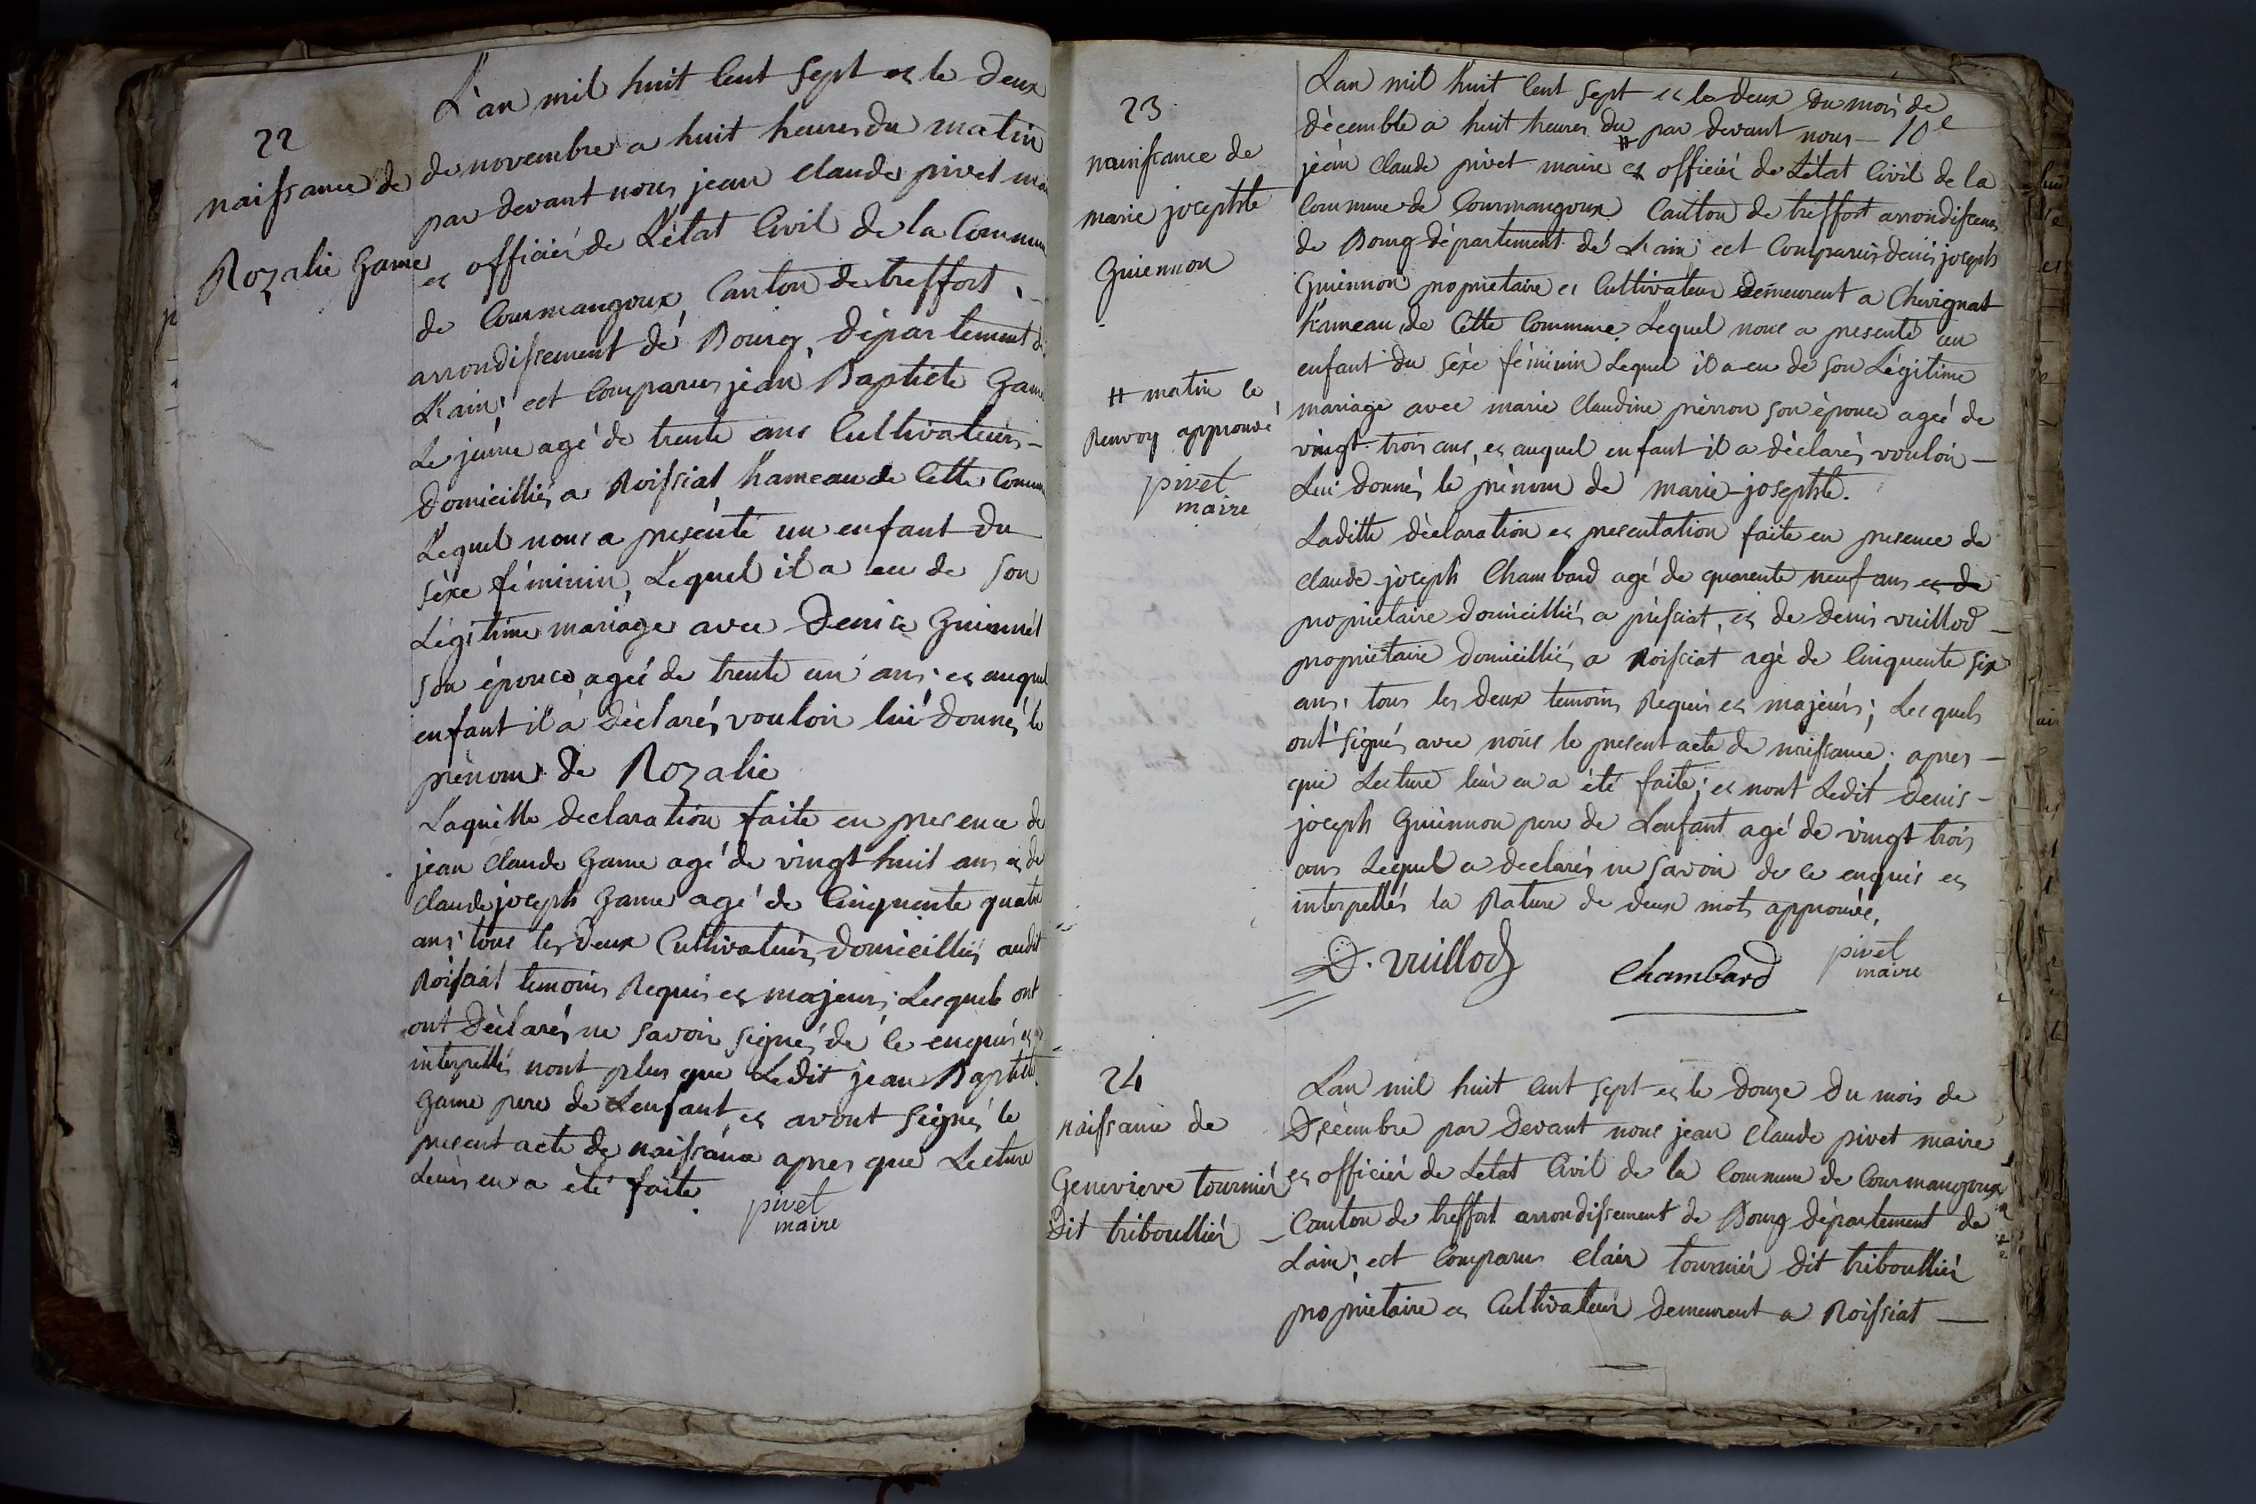 22
naissance de
Rozalie Game
L'an mil huit Cent sept et le deux
de novembre a huit heures du matin
par devant nous jean claude pivet
et officiér de L'état Civil de la Commun
de Courmangoux Canton de treffort
arrondissement dé Bourg, département
L'ain; est Comparus jean Baptiste Game
Le jeune agé de trente ans Cultivateur
domicilliés a Roissiat hameau de Cette Comun
Lequel nous a presénté un enfant du
sèxe féminin, Lequel il a eu de son
Légitime mariage avec Denise Guionnet
son épouse agée de trente un ans; et auquel
enfant il a déclarés vouloir lui donnés le
prénom de Rozalie
Laquelle declaration faite en presence de
jean claude Game agé de vingt huit ans et de
claude joseph Game agé de Cinquente quatre
ans; tous les deux Cultivateurs domicilliés audit
Roissiat temoins Requis et majeurs; Lesquels ont
ont Déclarés ne savoir signés de ce enquis et
interpellés nont plus que Ledit jean Baptiste
Game pere de Lenfant, et avont signés le
present acte de naissance apres que Lecture
Leurs en a été faite.
pivet
maire
23
nainssance de
marie josephte
Guiennon
# matin ce
Renvoy approuvé
pivet
maire
Lan mil huit Cent sept et le deux du mois de
décembre a huit heures du # par devant nous — 10e
jean claude pivet maire et officiér de L'état Civil de la
Commune de Courmangoux Canton de treffort arrondissem
de Bourg département de L'ain; est Comparus denis joseph
Guiennon propriétaire et Cultivateur demeurent a Chevignat
hameau de Cette Commune Lequel nous a presenté un
enfant du sèxe féminin Lequel il a eu de son Légitime
mariage avec marie Claudine pérron son épouse agée de
vingt trois ans, et auquel enfant il a déclarés vouloir —
Lui donnés le prénom de marie-josephte.
Laditte déclaration et presentation faite en presence de
claude-joseph Chambard agé de quarente neuf ans et de
propriétaire domicilliés a préssiat, et de denis vuillod —
propriétaire domicilliés a Roissiat agé de Cinquente six
ans; tous les deux temoins Requis et majeurs; Lesquels
ont signés avec nous le present acte de naissance; apres —
que Lecture leur en a été faite; et nont Ledit denis —
joseph Guiennon pere de Lenfant agé de vingt trois
ans Lequel a declarés ne savoir de ce enquis et
interpellés la Rature de deux mots approuvée.
D. vuillod
Chambard
pivet
maire
24
naissance de
Genevieve tourniér
Dit triboulliér
Lan mil huit cent sept et le douze du mois de
Décembre par devant nous jean claude pivet maire
et officiér de Létat Civil de la Commune de Courmangoux
Canton de treffort arrondissement de Bourg département de
Lain; est Comparus clair tourniér dit triboulliér
propriétaire et Cultivateur demeurent a Roissiat —